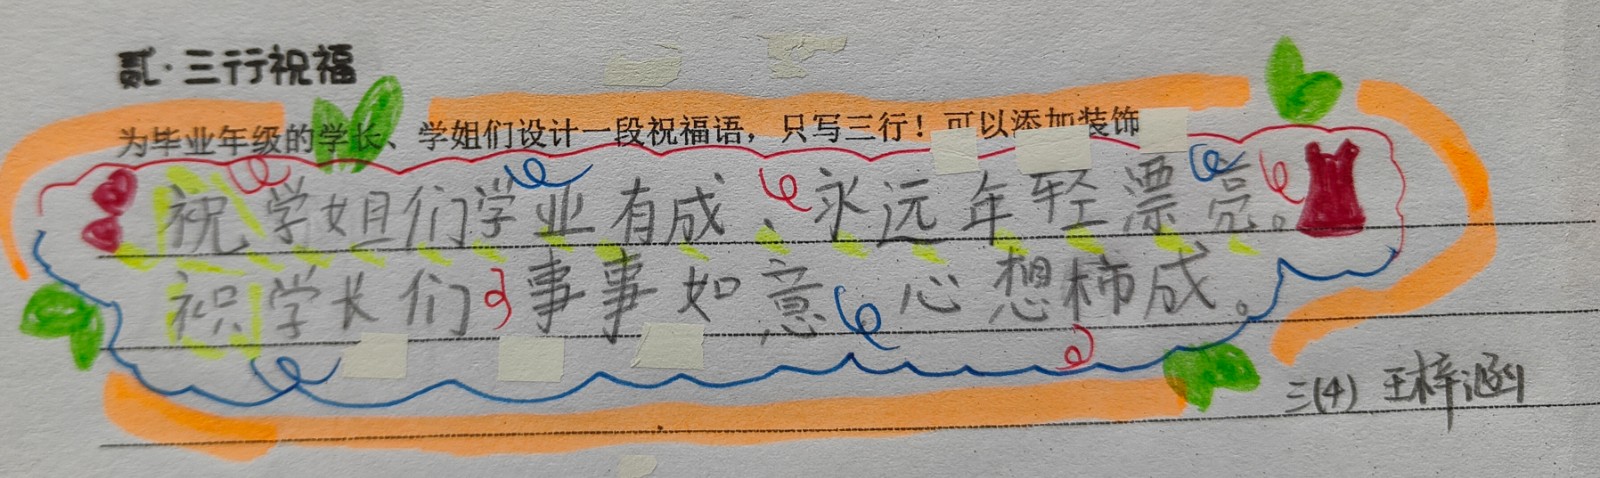 贰·三行祝福
为毕业年级的学长、学姐们设计一段祝福语，只写三行！可以添加装饰
祝学姐们学业有成、永远年轻漂亮。
祝学长们事事如意 心想柿成。
三(4) 王梓涵